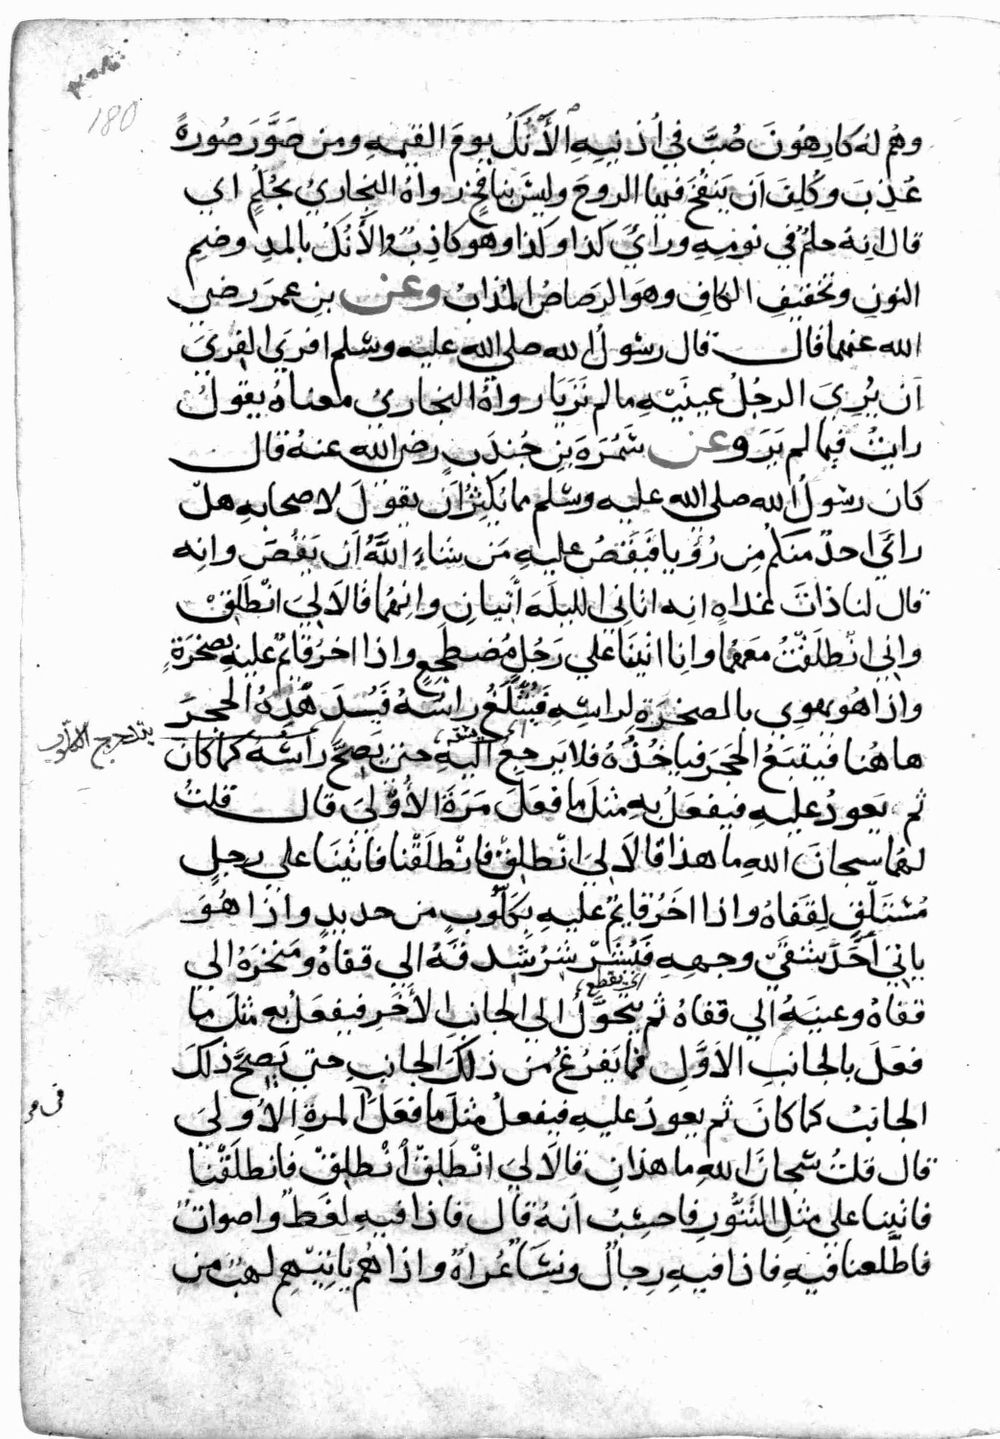 180
وهُم له كارهُونَ صُبَّ في اُذنيهِ الاَٰنُكُ يومَ القيمهِ ومن صَوَّرَ صُورةً
عُذِبَ وكُلِفَ اَن يَنفُخَ فيها الروحَ وليسَ بنافخٍ رواهُ البخاريُ بحُلُمٍ اي
قال انِهُ حلُم في نومِهِ ورايَ كذا وكذا وهو كاذِبٌ والاَٰنُكُ بالمدِ وضمِ
النونِ وتخفيفِ الكافِ وهوَ الرَصاصُ المُذابُ وعن بنِ عمرَ رضي
الله عنهما قال قال رسولُ الله صلي الله عليه وسلم افريَ الفِريَ
اَن يُرِيَ الرجُلُ عينَيْهِ ما لم تَرَيَا رواهُ البخاريُ معناهُ يقولُ
رايتُ فيما لم يَرَ وعن سَمُرَةَ بنِ جُندَبٍ رضي الله عنهُ قال
كان رسولُ الله صلي الله عليه وسلم مما يُكثِرُ اَن يقولَ لاصحابهِ هل
رائَي احدٌ منكم مِن رُؤيا فيَقُصُ عليهِ مَن شاءَ اللَّهُ اَن يَقُصَ وانِه
قال لنا ذاتَ غداهٍ انِه اتانِي الليلَهَ اَتيانِ وانِهما قالاَ ليَ انْطَلِقْ
واني انْطلَقْتُ معَهما وانِا اتينَا علي رَجُلٍ مُضطَجِعٍ واذا اخرُ قايمٌ عليهِ بصخرَةٍ
واذا هو يهوِي بالصخرَةِ لِراسِهِ فَيُثْلَغُ راسُهُ فَيُسدَ هْدِهُ الحجرَ
اي يشق
يتدحرج
ها هُنا فيَتبَعُ الحجَرَ فياخُذُهُ فلا يَرجِعُ اليهِ حتي يَصحَّ رأسُه كما كان
ثم يَعودُ عليهِ فيفعَلُ بهِ مثلَ ما فعَلَ مَرَةَ الاُوْليَ قال قلتُ
لهُما سبحانَ اللهِ ما هذا قالاَ ليَ انْطلِقْ فانْطلَقْنا فاتَينَا علي رجلٍ
مُسْتَلْقٍ لِقَفاهُ واذا اخَرُ قايمٌ عليهِ بِكَلُّوبٍ من حديدٍ واذا هُوَ
ياتيَ اَحَدَ شقيَّ وجههِ فَيُشَرْ شرُ شِدقَهُ الي قفاهُ ومَنْخرَهُ الي
اي يقطع
قفاهُ وعينَهُ الي قفاهُ ثم يتحَوَّلُ الي الجانبِ الاخَرِ فيفعَلُ بهِ مثلَ ما
فعَلَ بالجانبِ الاَوَّلِ فما يَفرُغُ من ذلكَ الجانبِ حتي يَصِحَّ ذلكَ
الجانبُ كما كانَ ثم يعودُ عليهِ فيفعلُ مثلَ ما فعَلَ المرةِ الاُوليَ
قال قلتُ سُبحانَ اللهِ ما هذانِ قالاَ ليَ انْطَلِقْ اُنْطلِقْ فانطلَقْنا
فاتَينا علي مِثلِ التَنُّورِ فاحسِبُ اَنهُ قال فاذا فيهِ لغَطٌ واصواتٌ
فاطَّلعنا فيهِ فاذا فيهِ رجالٌ ونسَاءٌ عُراةٌ واذا هُم ياتِيهِم لهبٌ من